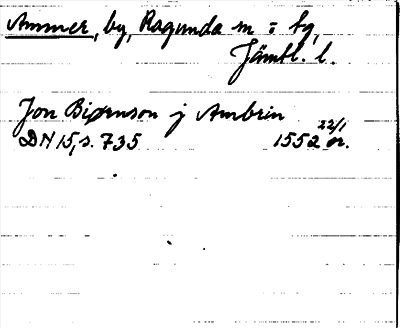 Ammer, by, Ragunda sn o tg,
Jämtl. l.
Jon Biørnson j Ambrin
22/1
DN 15, s. 735 1552 or.